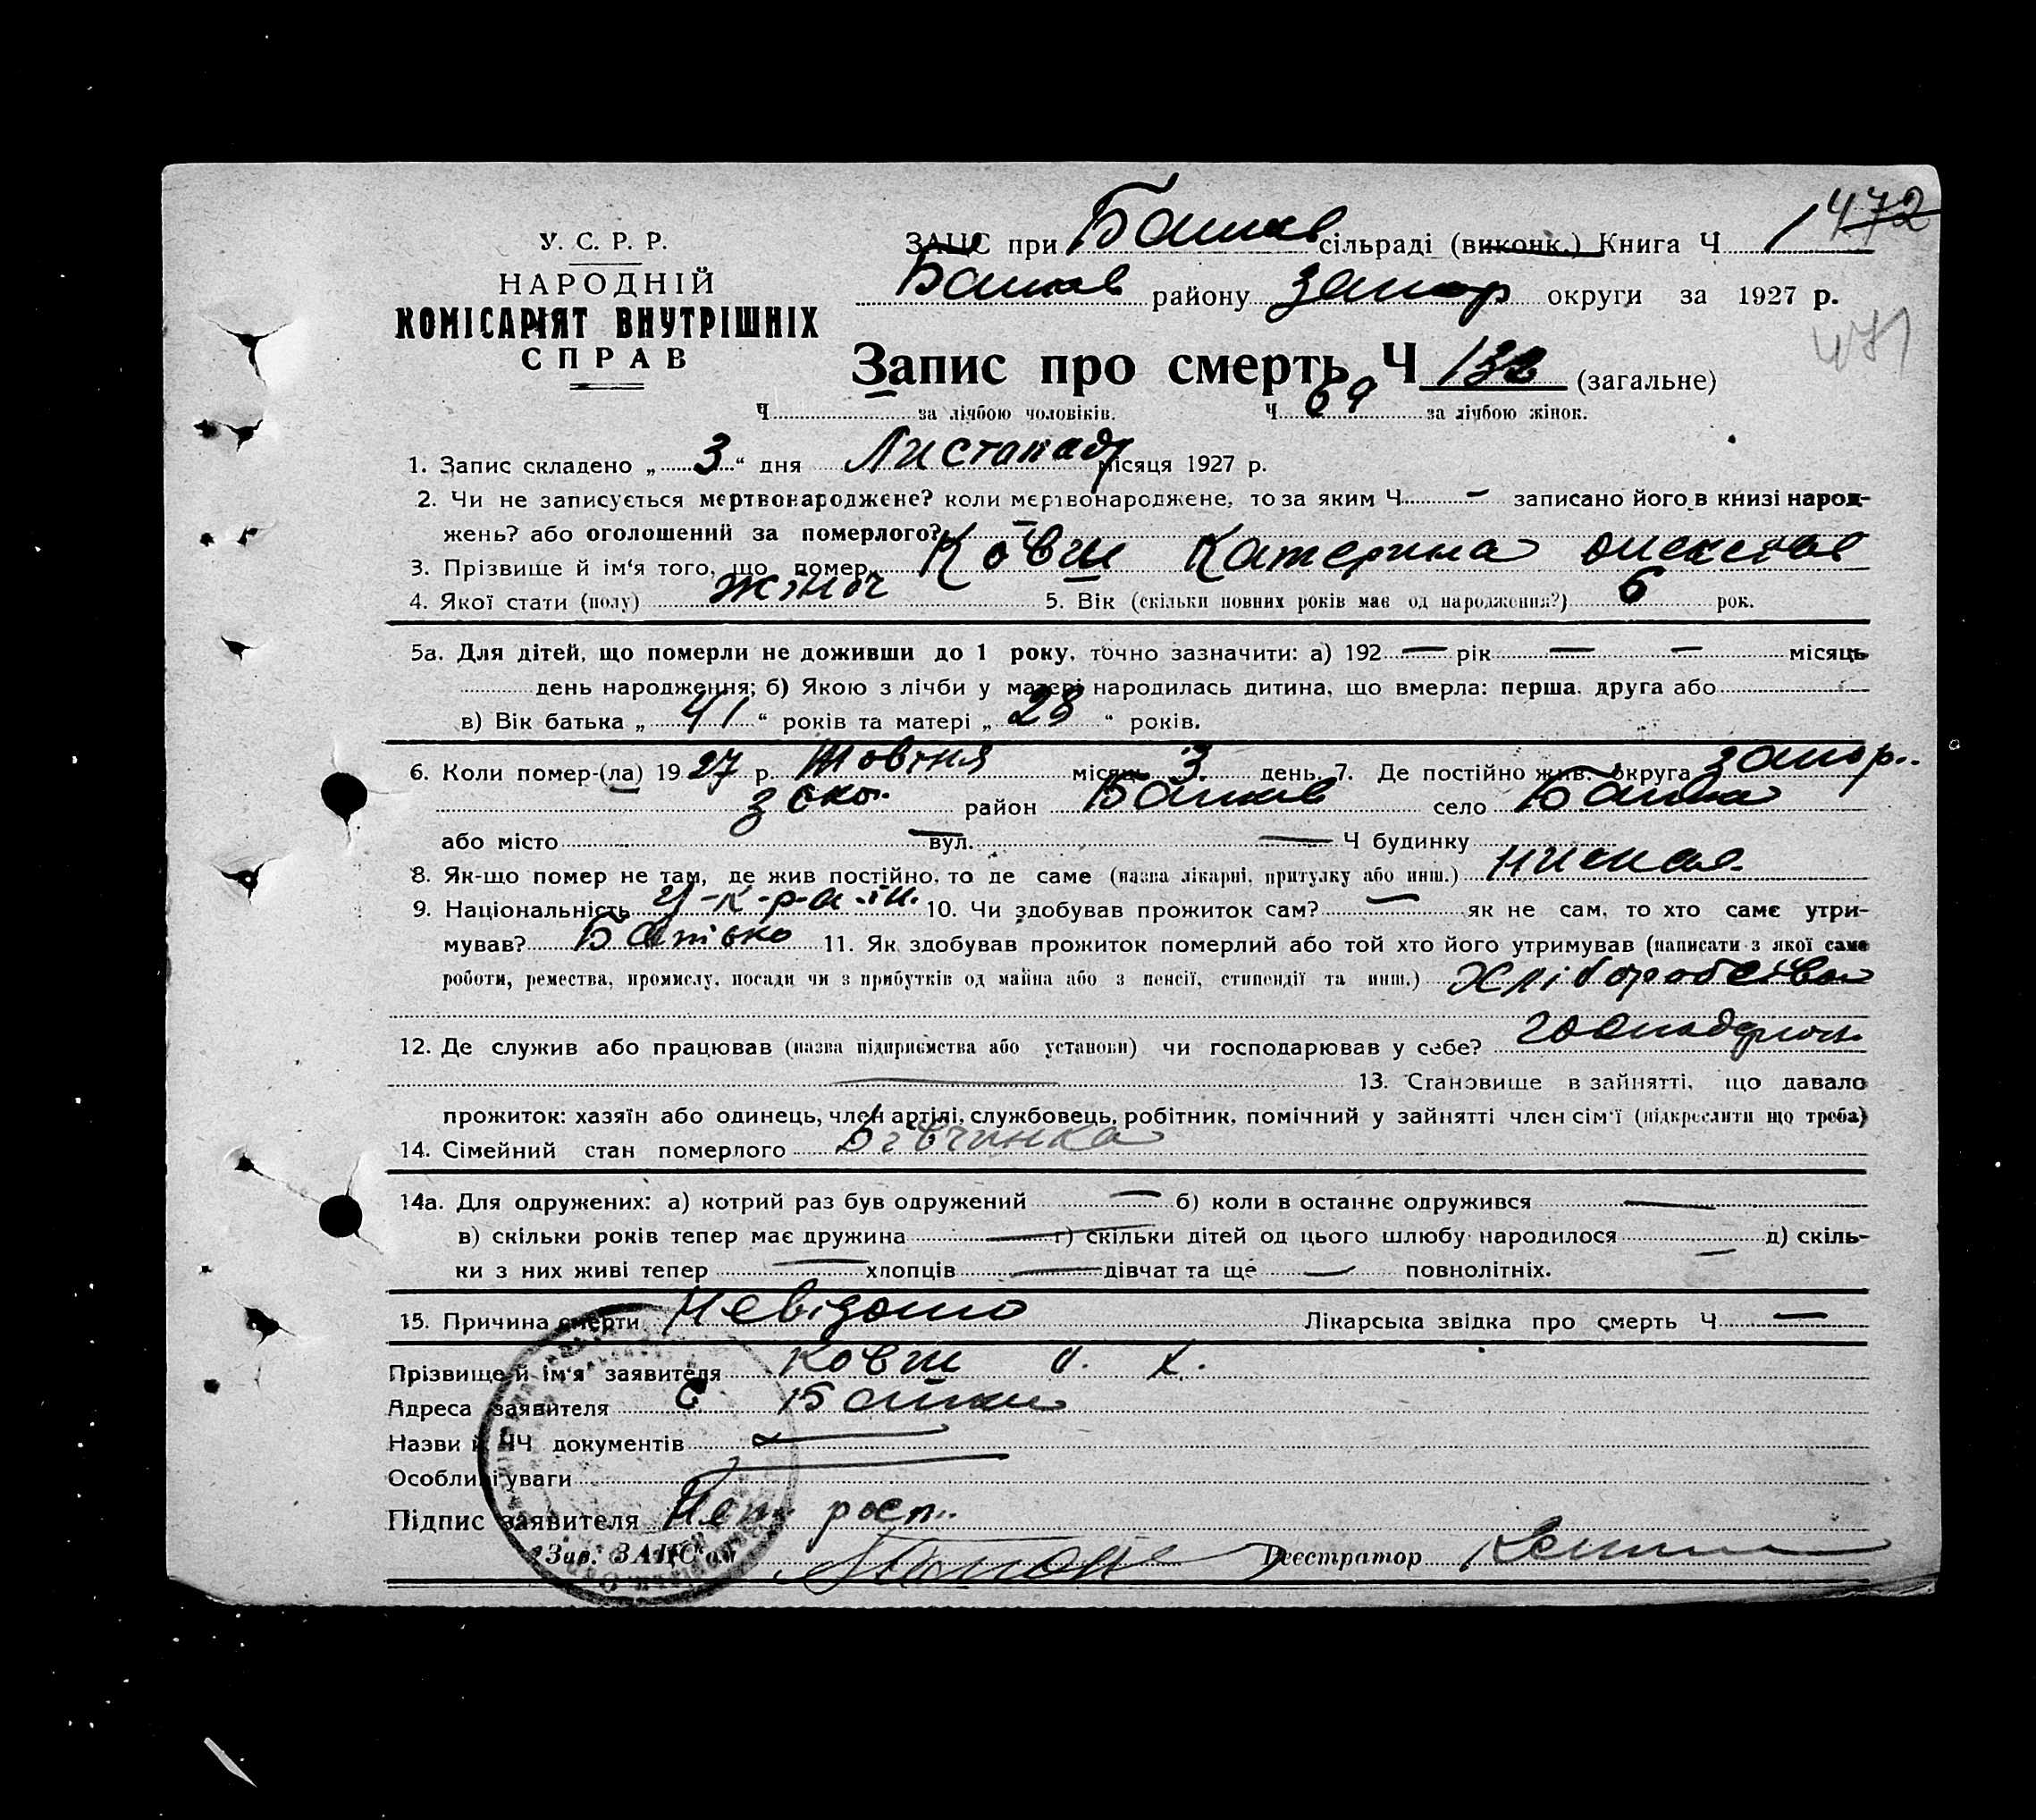 472
У. С. Р. Р.
НАРОДНІЙ
КОМІСАРІЯТ ВНУТРІШНІХ
СПРАВ
ЗАЦС при сільраді (виконк.) Книга Ч 1
району Запор округи за 1927 р.
471
Запис про смерть Ч (загальне)
Ч за лічбою чоловіків. Ч 69 за лічбою жінок.
1. Запис складено „ 3 “ дня Листопаду місяця 1927 р.
2. Чи не записується мертвонароджене? коли мертвонароджене, то за яким Ч — записано його в книзі народ-
жень? або оголошений за померлого? —
3. Прізвище й ім'я того, що помер Ковш Катерина
4. Якої стати (полу) жіноч 5. Вік (скільки повних років має од народження?) 6 рок.
5а. Для дітей, що померли не доживши до 1 року, точно зазначити: а) 192 — рік — — місяць
день народження; б) Якою з лічби у матері народилась дитина, що вмерла: перша, друга або
в) Вік батька „ 41 “ років та матері „ 28 “ років.
6. Коли помер-(ла) 1927 р. Жовтня місяць 3 день. 7. Де постійно жив: округа Запор..
район село
або місто — вул. — Ч будинку
8. Як-що помер не там, де жив постійно, то де саме (назва лікарні, притулку або инш.)
9. Національність у-к-р-а-їн. 10. Чи здобував прожиток сам? — як не сам, то хто саме утри-
мував? Батько 11. Як здобував прожиток померлий або той хто його утримував (написати з якої саме
роботи, ремества, промислу, посади чи з прибутків од майна або з пенсії, стипендії та инш.) Хліборобство
12. Де служив або працював (назва підприємства або установи) чи господарював у себе?
— 13. Становище в зайнятті, що давало
прожиток: хазяїн або одинець, член артілі, службовець, робітник, помічний у зайнятті член сім'ї (підкреслити що треба)
14. Сімейний стан померлого Дівчинка
14а. Для одружених: а) котрий раз був одружений — б) коли в останнє одружився —
в) скільки років тепер має дружина — г) скільки дітей од цього шлюбу народилося — д) скіль-
ки з них живі тепер — хлопців — дівчат та ще — повнолітніх.
15. Причина смерти Невідомо Лікарська звідка про смерть Ч —
Прізвище й ім'я заявителя Ковш
Адреса заявителя С
Назви й ЧЧ документів —
Особливі уваги —
Підпис заявителя
Зав. ЗАЦС'ом Реєстратор